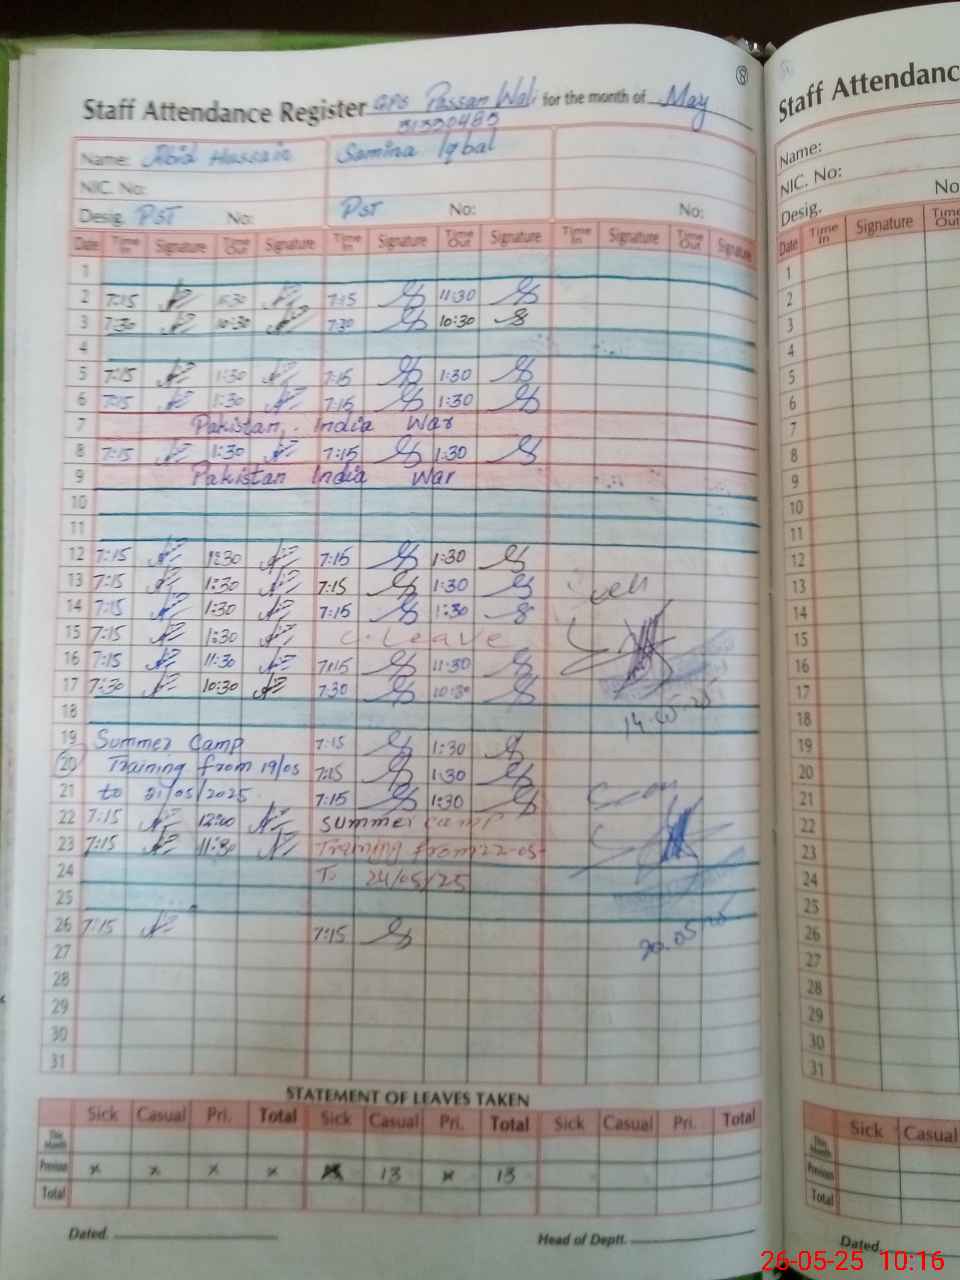 Staff Attendance Register GPS Passan Wali for the month of May
31330483
Name: Abid Hussain Samina Iqbal
NIC. No:
Desig. PST No: PST No: No:
Date Time In Signature Time Out Signature Time In Signature Time Out Signature Time In Signature Time Out Signature
1
2 7:15 11:30 7:15 11:30
3 7:30 10:30 7:30 10:30
4
5 7:15 1:30 7:15 1:30
6 7:15 1:30 7:15 1:30
7 Pakistan, India War
8 7:15 1:30 7:15 1:30
9 Pakistan India War
10
11
12 7:15 1:30 7:15 1:30
13 7:15 1:30 7:15 1:30
14 7:15 1:30 7:15 1:30
15 7:15 1:30 C. Leave
16 7:15 11:30 7:15 11:30
17 7:30 10:30 7:30 10:30
14-05-25
18
19 Summer Camp 7:15 1:30
20 Training from 19/05 7:15 1:30
21 to 21/05/2025. 7:15 1:30
22 7:15 12:00 Summer camp
23 7:15 11:30 Training from 22-05-
24 To 24/05/25
25
26 7:15 7:15
20.05
27
28
29
30
31
STATEMENT OF LEAVES TAKEN
Sick Casual Pri. Total Sick Casual Pri. Total Sick Casual Pri. Total
This Month
Previous × × × × × 13 × 13
Total
Dated. Head of Deptt.
Staff Attendanc
Name:
NIC. No:
Desig. No
Date Time In Signature Time Out
1
2
3
4
5
6
7
8
9
10
11
12
13
14
15
16
17
18
19
20
21
22
23
24
25
26
27
28
29
30
31
Sick Casual
This Month
Previous
Total
Dated.
26-05-25 10:16